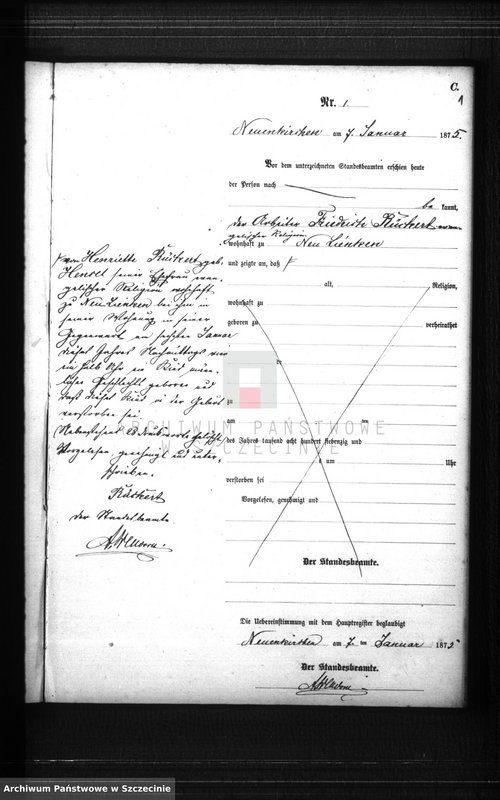 C.
1
Nr. 1
Neuenkirchen am 7. Januar 1875.
Vor dem unterzeichneten Standesbeamten erschien heute
der Person nach
be kannt,
der Arbeiter Friedrich Rückert evan-
gelischer Religion
wohnhaft zu Neu Lienken
und zeigte an, daß
alt, Religion,
wohnhaft zu
geboren zu verheirathet
zu
am ten
des Jahres tausend acht hundert siebenzig und
um Uhr
verstorben sei
Vorgelesen, genehmigt und
Der Standesbeamte.
Die Uebereinstimmung mit dem Hauptregister beglaubigt
Neuenkirchen am 7. ten Januar 1875
Der Standesbeamte.
von Henriette Rückert geb.
Hensel seiner Ehefrau evan-
gelischer Religion wohnhaft
zu Neu Lienken bei ihm in
seiner Wohnung in seiner
Gegenwart am sechsten Januar
dieses Jahres Nachmittags um
ein halb Uhr ein Kind männ-
lichen Geschlechts geboren und
daß dieses Kind in der Geburt
verstorben sei.
Nebenstehend Druckworte gelöscht
Vorgelesen genehmigt und unter-
schrieben.
Rückert
Der Standesbeamte.
ARCHIWUM PAŃSTWOWE
W SZCZECINIE
Archiwum Państwowe w Szczecinie